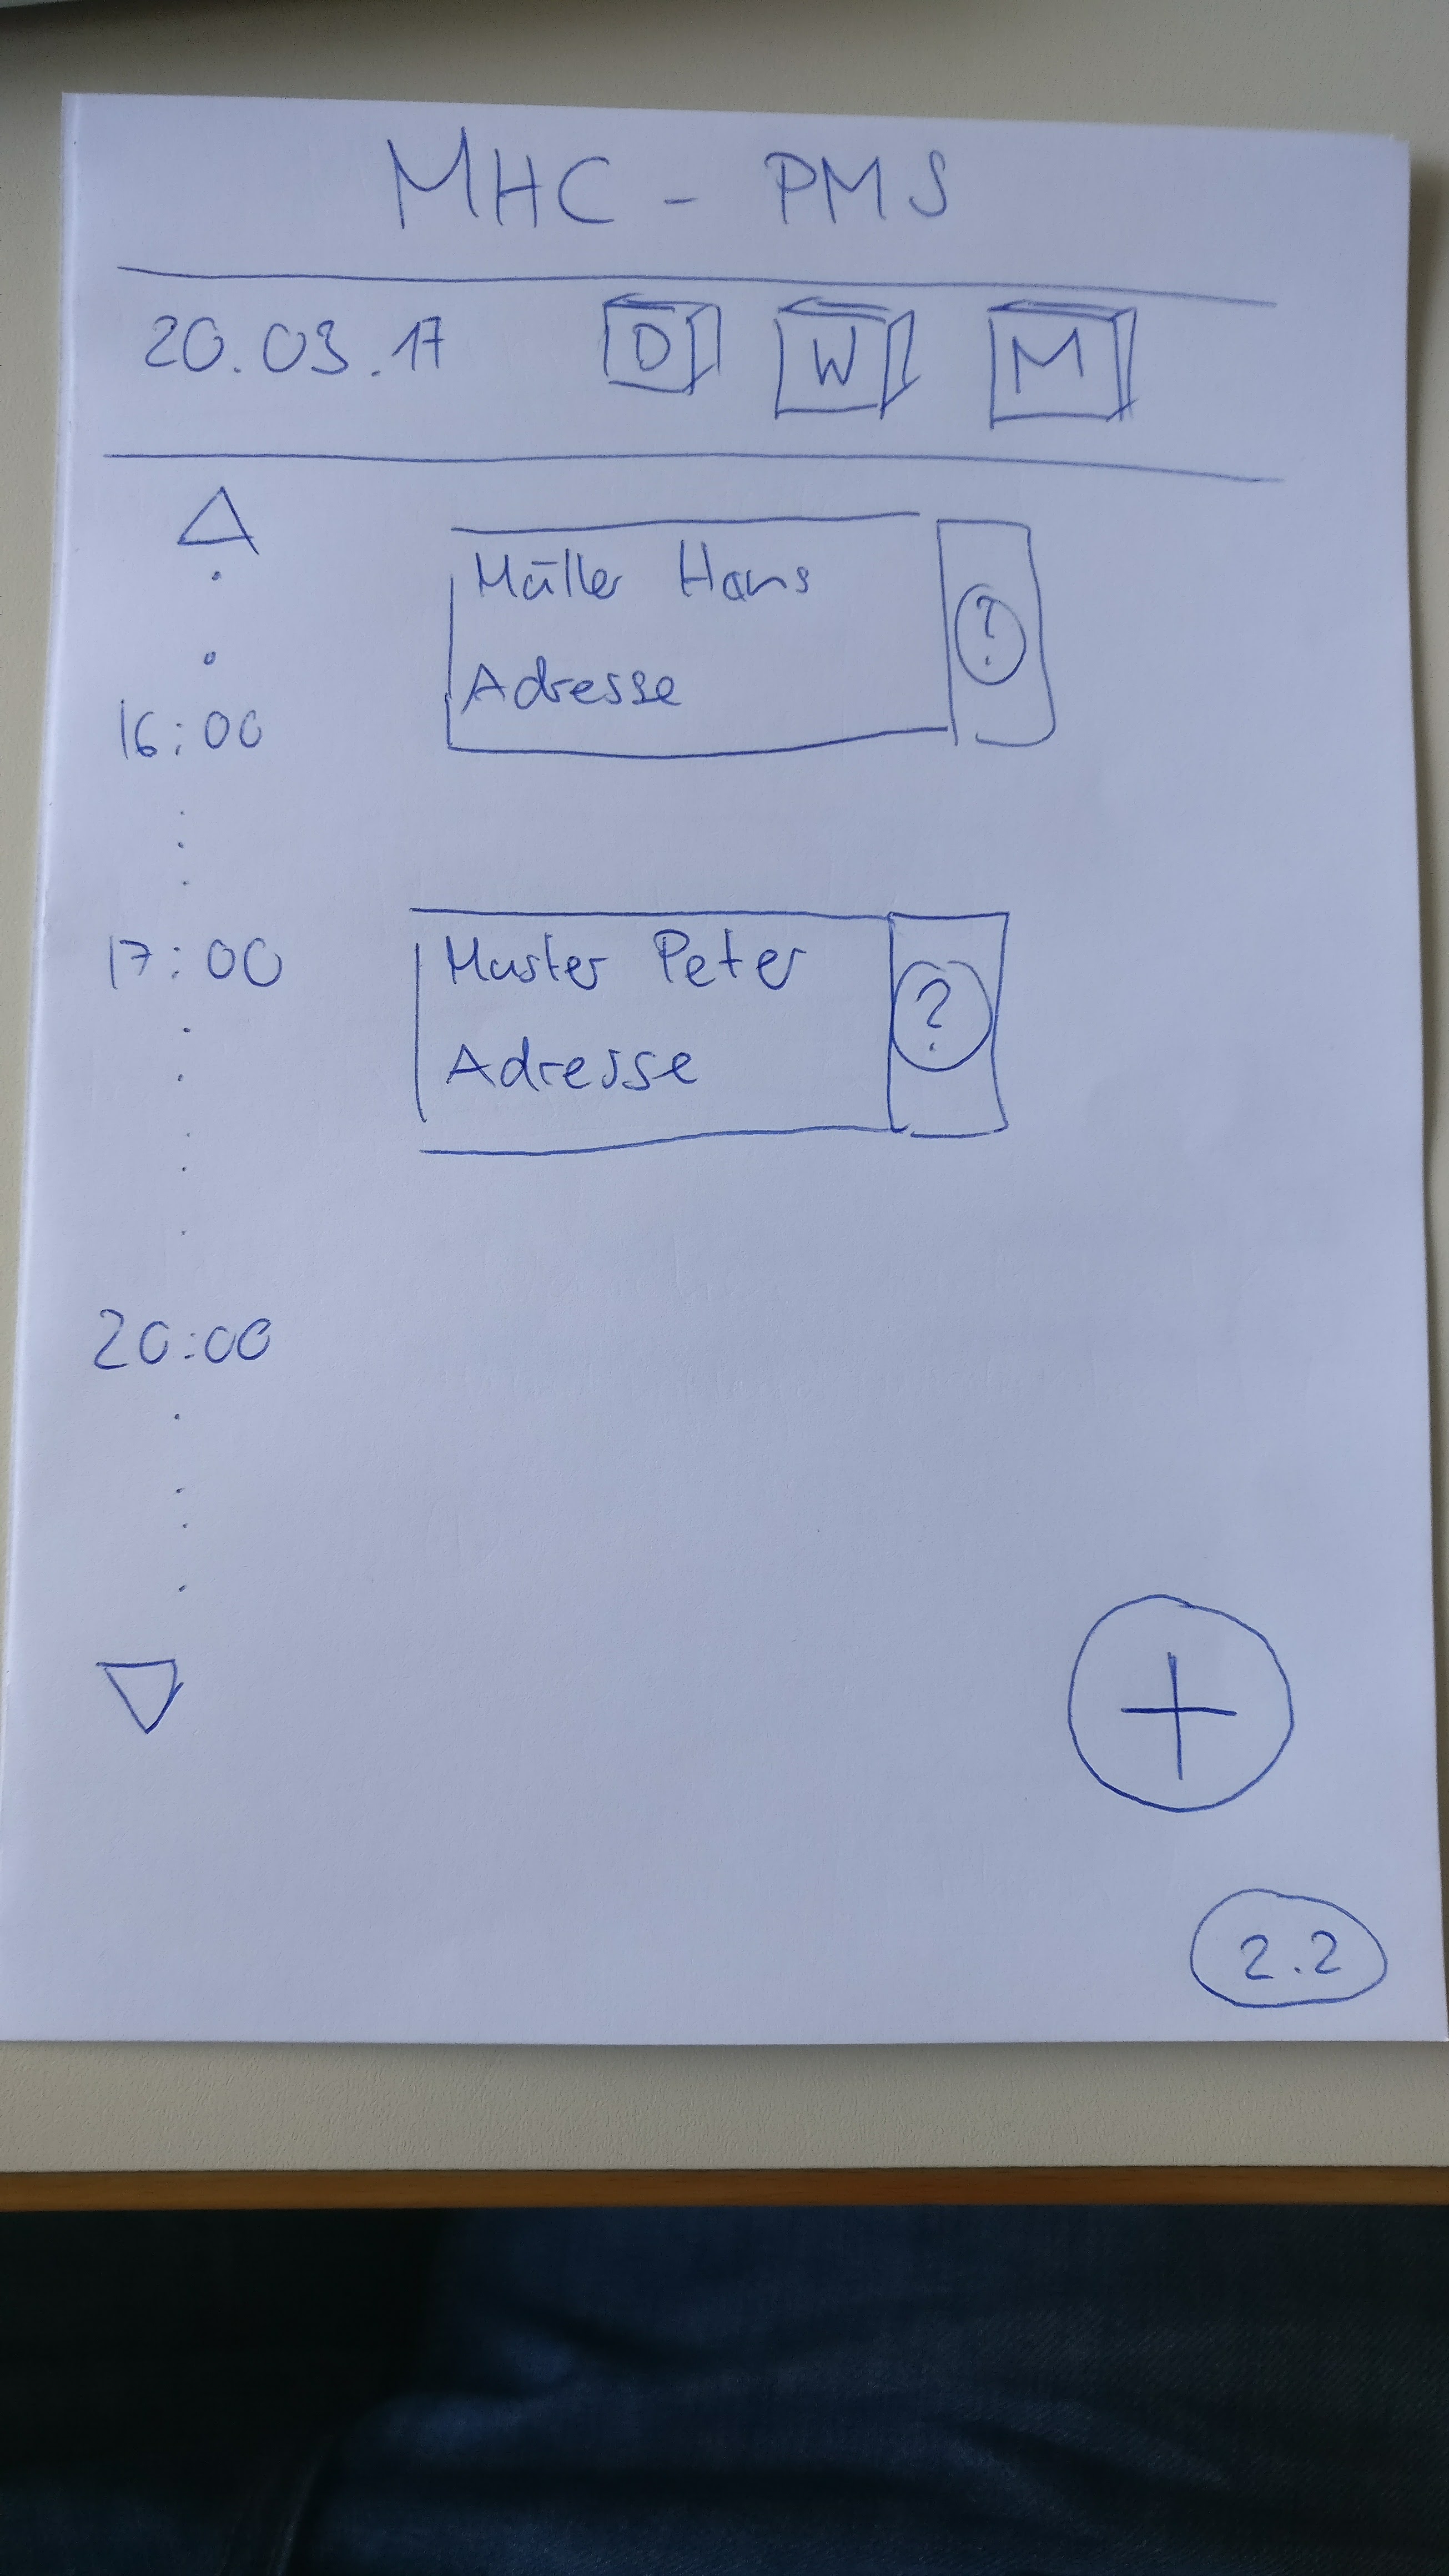 MHC - PMS
20.03.17 D W M
Müller Hans
?
Adresse
16:00
17:00 Muster Peter
?
Adresse
20:00
+
2.2